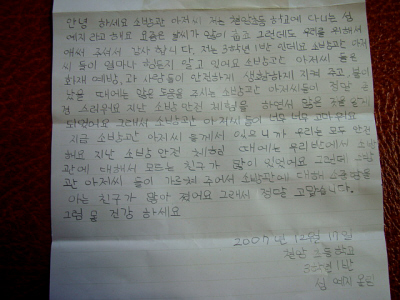 안녕 하세요 소방관 아저씨 저는 철암초등 학교에 다니는 심
예지 라고 해요 요즘은 날씨가 많이 춥죠 그런데도 우리를 위해서
애써 주셔서 감사 합니다. 저는 3학년 1반 인데요 소방관 아저
씨 들이 얼마나 힘든지 알고 있어요 소방관 아저씨 들은
화재 예방, 과 사람들이 안전하게 생활하게 지켜 주고, 불이
났을 때에는 많은 도움을 주시는 소방관 아저씨들이 정말
스러워요 지난 소방 안전 체험을 하면서 많은 것을 알게
되었어요 그래서 소방관 아저씨 들이 너무 너무 고마워요
지금 소방관 아저씨 들께서 있으니까 우리는 모두 안전
해요 지난 소방 안전 체험 때에는 우리 반에서 소방
관에 대해서 모르는 친구가 많이 있었어요 그런데 소방
관 아저씨 들이 가르쳐 주어서 소방관에 대해
아는 친구가 많아 졌어요 그래서 정말 고맙습니다.
그럼 몸 건강 하세요
2007년 12월 17일
철암 초등학교
3학년 1반
심 예지 올림